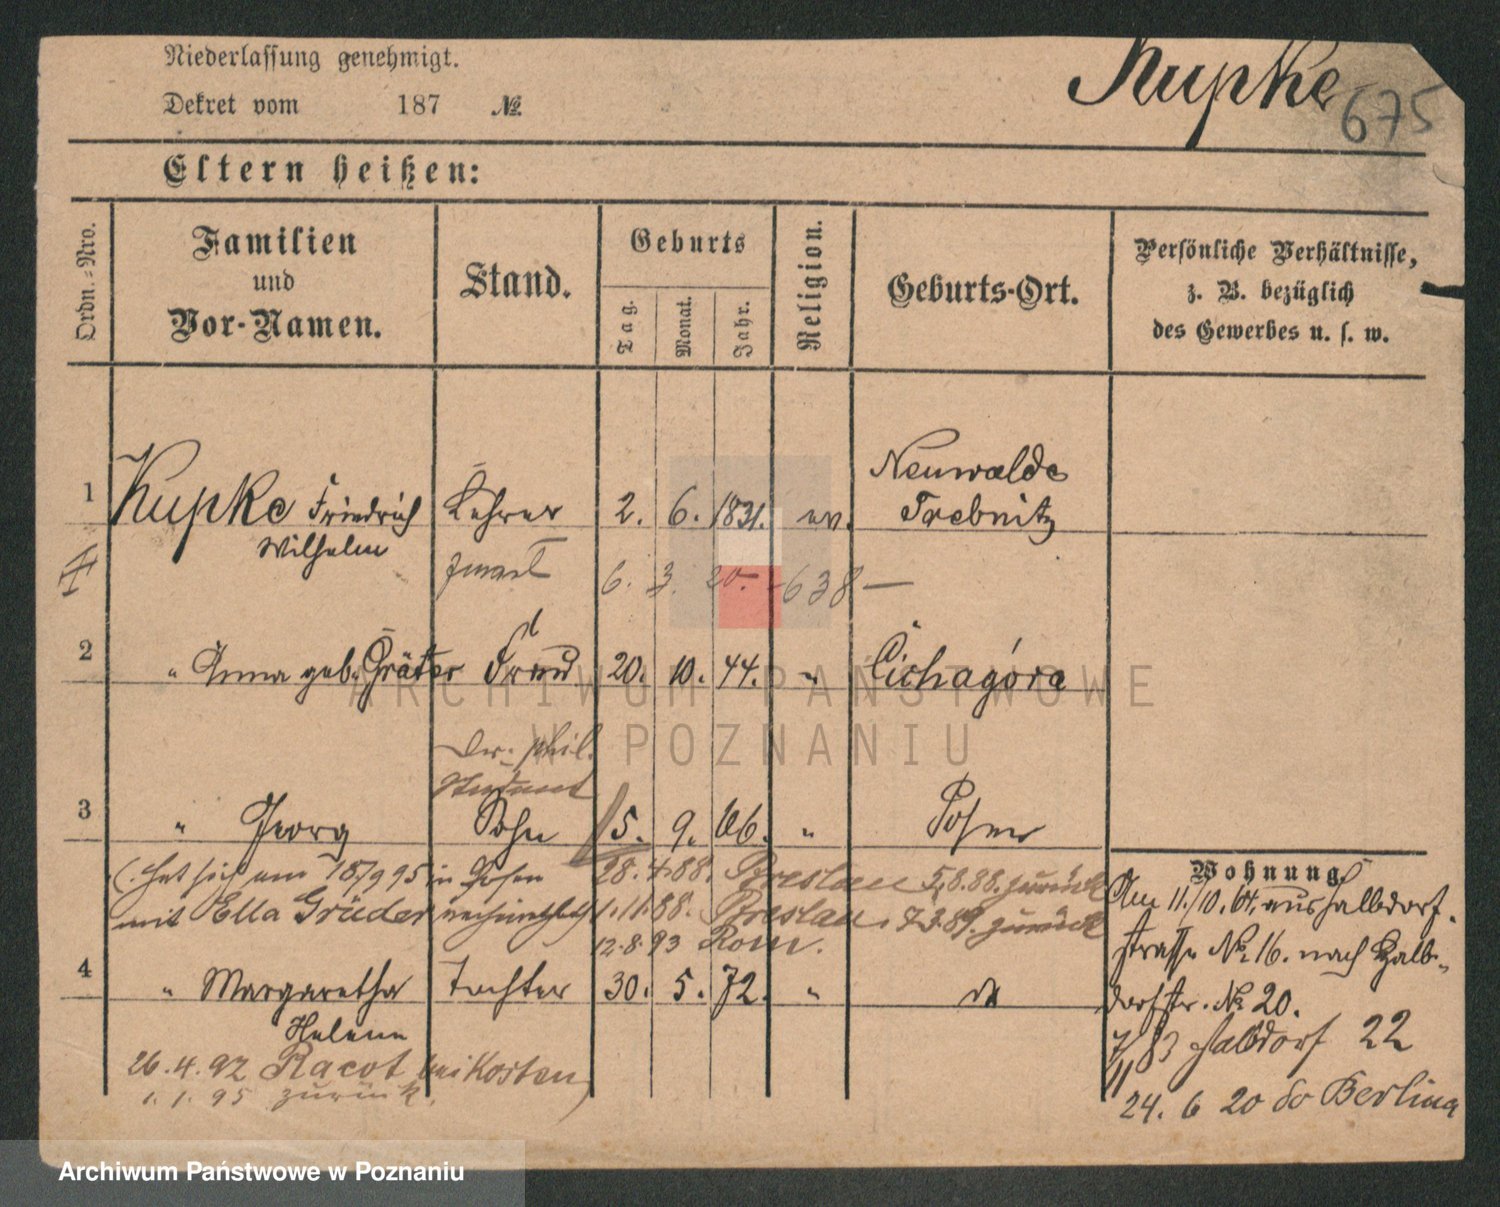 Niederlassung genehmigt.
Dekret vom 187 №
Kupke
675
Eltern heißen:
Ordn.-Nro.
Familien
und
Vor-Namen.
Stand.
Geburts
Tag.
Monat.
Jahr.
Religion.
Geburts-Ort.
Persönliche Verhältnisse,
z. B. bezüglich
des Gewerbes u. s. w.
Neuwalde
1 Kupke Friedrich Lehrer 2. 6. 1831. ev. Trebnitz
Wilhelm
6. 3. 20. 638 —
2 " Anna geb. Gräter Frau 20. 10. 44. " Cichagóra
Dr. phil.
Student
3 " Georg Sohn 5. 9. 66. " Posen
(. hat sich am 18/9 95 in Posen 28. 4. 88. Breslau 5.8.88. zurück
mit Ella Grüder 1. 11. 88. Breslau. 7.3.89. zurück
12. 8. 93 Rom.
4 " Margaretha Tochter 30. 5. 72. "
Helene
26. 4. 92 Racot bei Kosten
1. 1. 95 zurück.
Wohnung
Am 11./10. 64. aus Halbdorf-
strasse No 16. nach Halb-
dorfstr. No 20.
83 Halbdorf 22
24. 6 20 do Berlin
ARCHIWUM PAŃSTWOWE
W POZNANIU
Archiwum Państwowe w Poznaniu